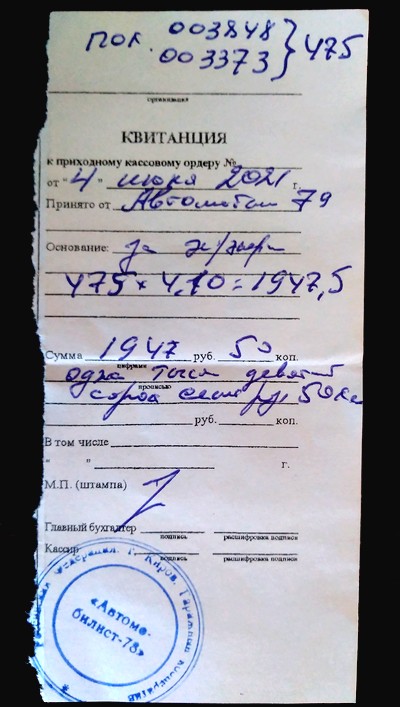 пок. 003848 } 475
003373
организация
КВИТАНЦИЯ
к приходному кассовому ордеру №
от "4" июня 2021 г.
Принято от Автомобил 79
Основание: за эл/энерг
475 × 4,10 = 1947,5
Сумма 1947 руб. 50 коп.
цифрами
одна тыся девятьс
прописью
сорок семь руб 50 ко
руб. коп.
В том числе
" " г.
М.П. (штампа)
Главный бухгалтер
подпись расшифровка подписи
Кассир
подпись расшифровка подписи
Федерация. г. Киров. Гаражный кооператив
«Автомо-
билист-78»